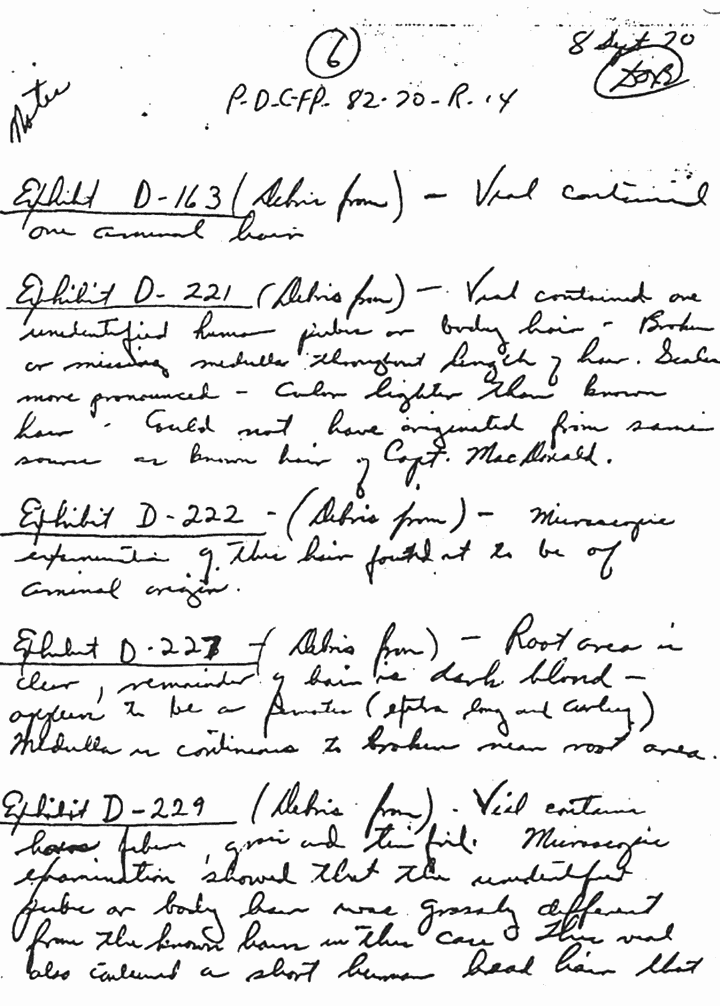 6
8 Sept 70
Notes
P-D-C-FP-82-70-R-14
Exhibit D-163 (Debris from) - Vial contained
one animal hair
Exhibit D-221 (Debris from) - Vial contained one
unidentified human pubic or body hair - Broken
or missing medulla throughout length of hair. Scales
more pronounced - Color lighter than known
hair - Could not have originated from same
source as known hair of Capt. MacDonald.
Exhibit D-222 - (Debris from) - Microscopic
examination of this hair found it to be of
animal origin.
Exhibit D-227 - (Debris from) - Root area is
clear, remainder of hair is dark blond -
appears to be a (extra long and curley)
Medulla is continous to broken near root area.
Exhibit D-229 (Debris from). Vial contains
fibers, and tin foil. Microscopic
examination showed that the unidentified
pubic or body hair was grossly different
from the known hairs in this case. This vial
also contained a short human head hair that